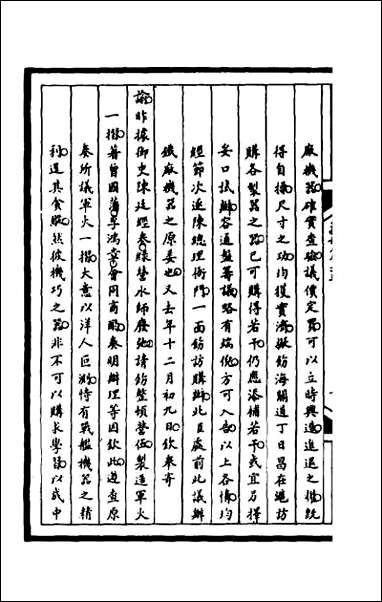 廠機器確實查驗議價定買可以立時興造進退之權既
得自操尺寸之功均獲實濟擬飭海關道丁日昌在滬訪
購各製器之器已可購得若干仍應添補若干或宜另擇
妥口試辦容通盤籌議略有端倪方可入告以上各情均
經節次逕陳總理衙門一面飭訪購辦此臣處前此議辦
鐵廠機器之原委也又去年十二月初九日欽奉寄
諭昨據御史陳廷經奏綠營水師廢弛請飭整頓營伍製造軍火
一摺著曾國藩李鴻章會同商酌奏明辦理等因欽此遵查原
奏所議軍火一摺大意以洋人巨測恃有戰艦機器之精
利逞其貪縱然彼機巧之器非不可以購求學習以成中